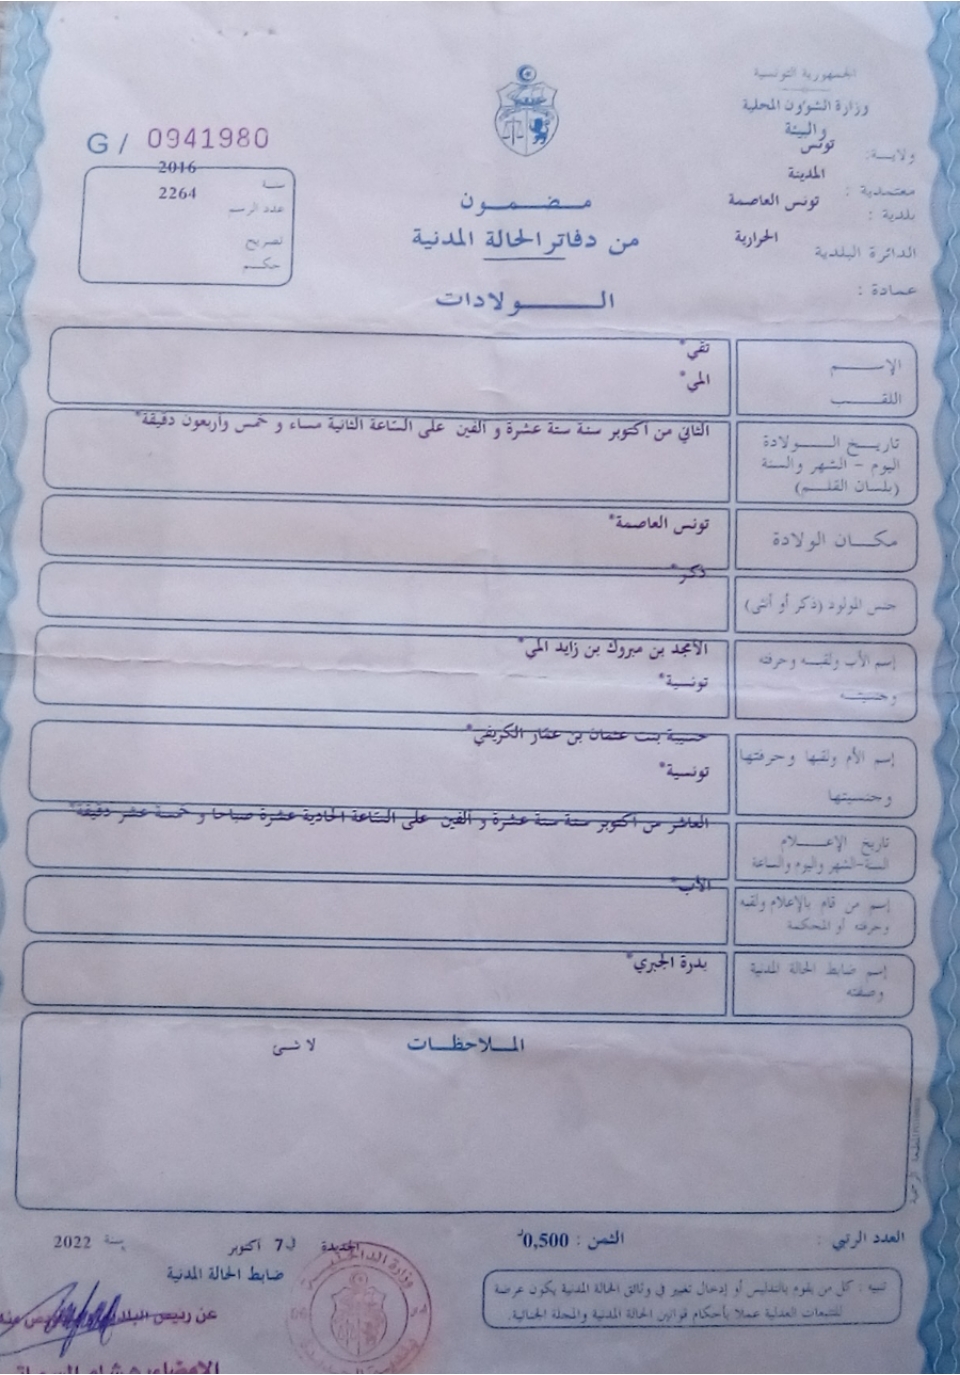 الجمهورية التونسية
وزارة الشؤون المحلية
والبيئة
ولاية: تونس
معتمدية : المدينة
بلدية : تونس العاصمة
الدائرة البلدية الحرارية
عمادة :
G / 0941980
سنة 2016
عدد الرسم 2264
تصريح
حكم
مضمون
من دفاتر الحالة المدنية
الولادات
الإسم تقي*
اللقب المي*
تاريخ الولادة
اليوم - الشهر والسنة
(بلسان القلم)
الثاني من اكتوبر سنة ستة عشرة و ألفين على الساعة الثانية مساء و خمس وأربعون دقيقة*
مكان الولادة تونس العاصمة*
جنس المولود (ذكر أو أنثى) ذكر*
إسم الأب ولقبه وحرفته
وجنسيته
الأمجد بن مبروك بن زايد المي*
تونسية*
إسم الأم ولقبها وحرفتها
وجنسيتها
حسيبة بنت عثمان بن عمار الكريفي*
تونسية*
تاريخ الإعلام
السنة-الشهر واليوم والساعة
العاشر من اكتوبر سنة ستة عشرة و ألفين على الساعة الحادية عشرة صباحا و خمسة عشر دقيقة*
إسم من قام بالإعلام ولقبه
وحرفته أو المحكمة
الأب*
إسم ضابط الحالة المدنية
وصفته
بدرة الجبري*
الملاحظات لا شئ
العدد الرتبي :
الثمن : 0,500د
في 7 اكتوبر سنة 2022
ضابط الحالة المدنية
عن رئيس البلدية
تنبيه : كل من يقوم بالتدليس أو إدخال تغيير في وثائق الحالة المدنية يكون عرضة
للتتبعات العدلية عملا بأحكام قوانين الحالة المدنية والمجلة الجنائية.